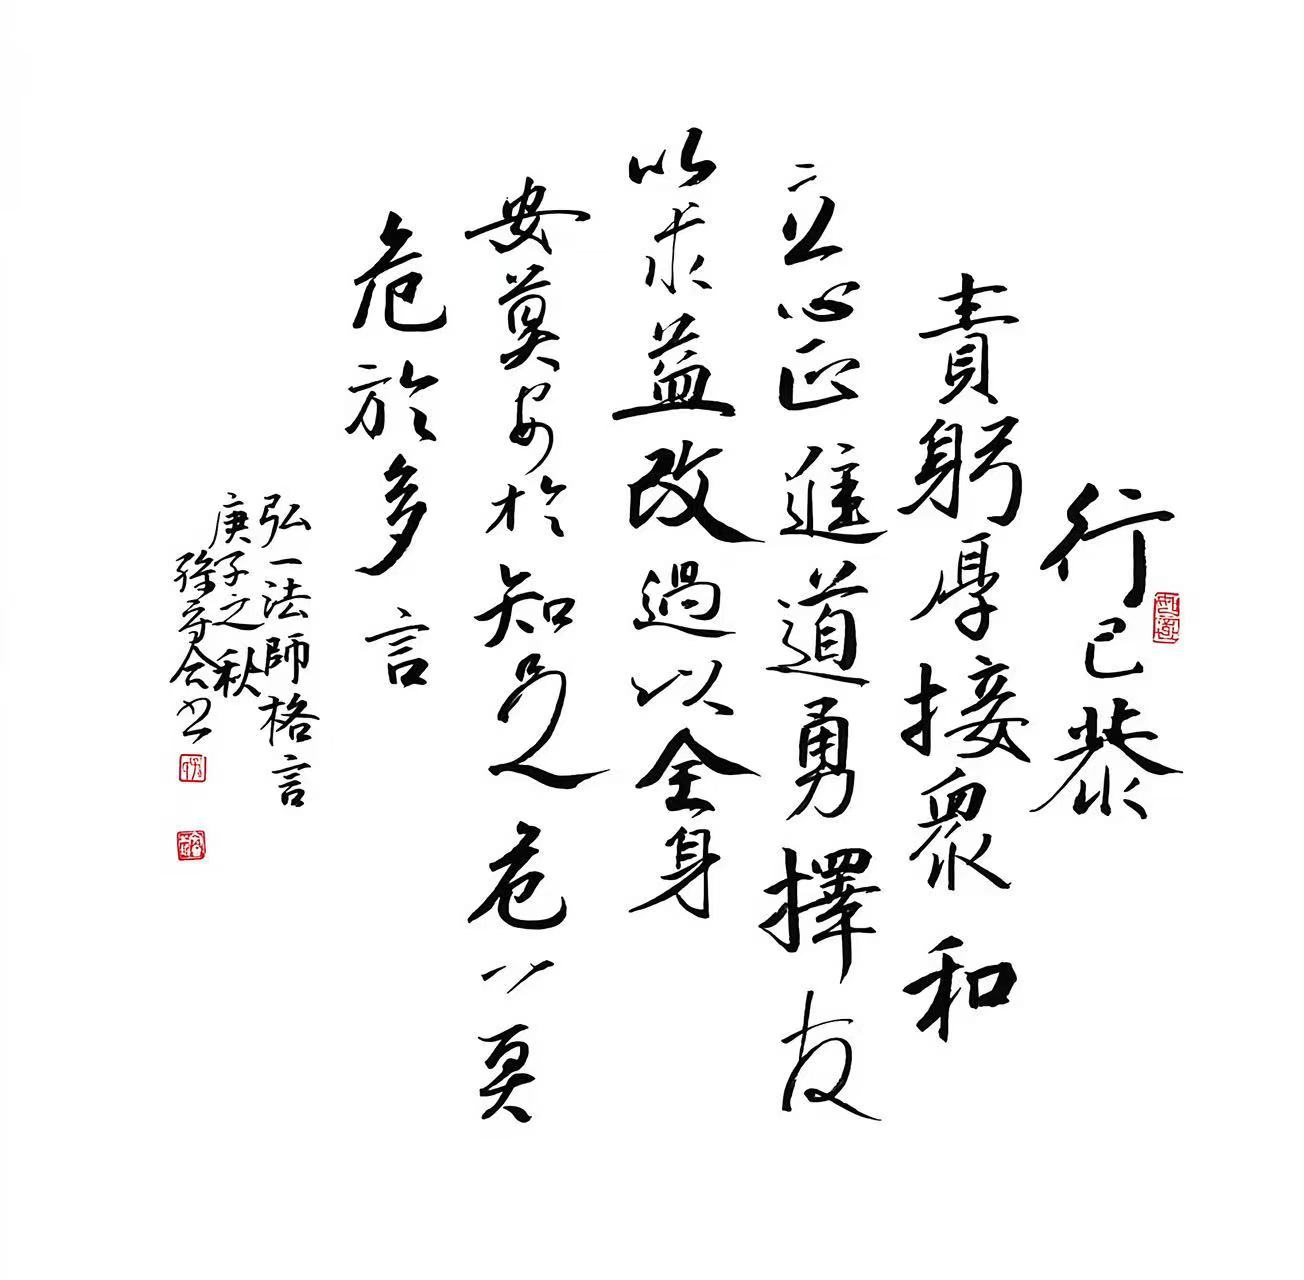 行己恭
責躬厚接衆和
立心正進道勇擇友
以求益改過以全身
安莫安於知足危莫
危於多言
弘一法師格言
庚子之秋
书